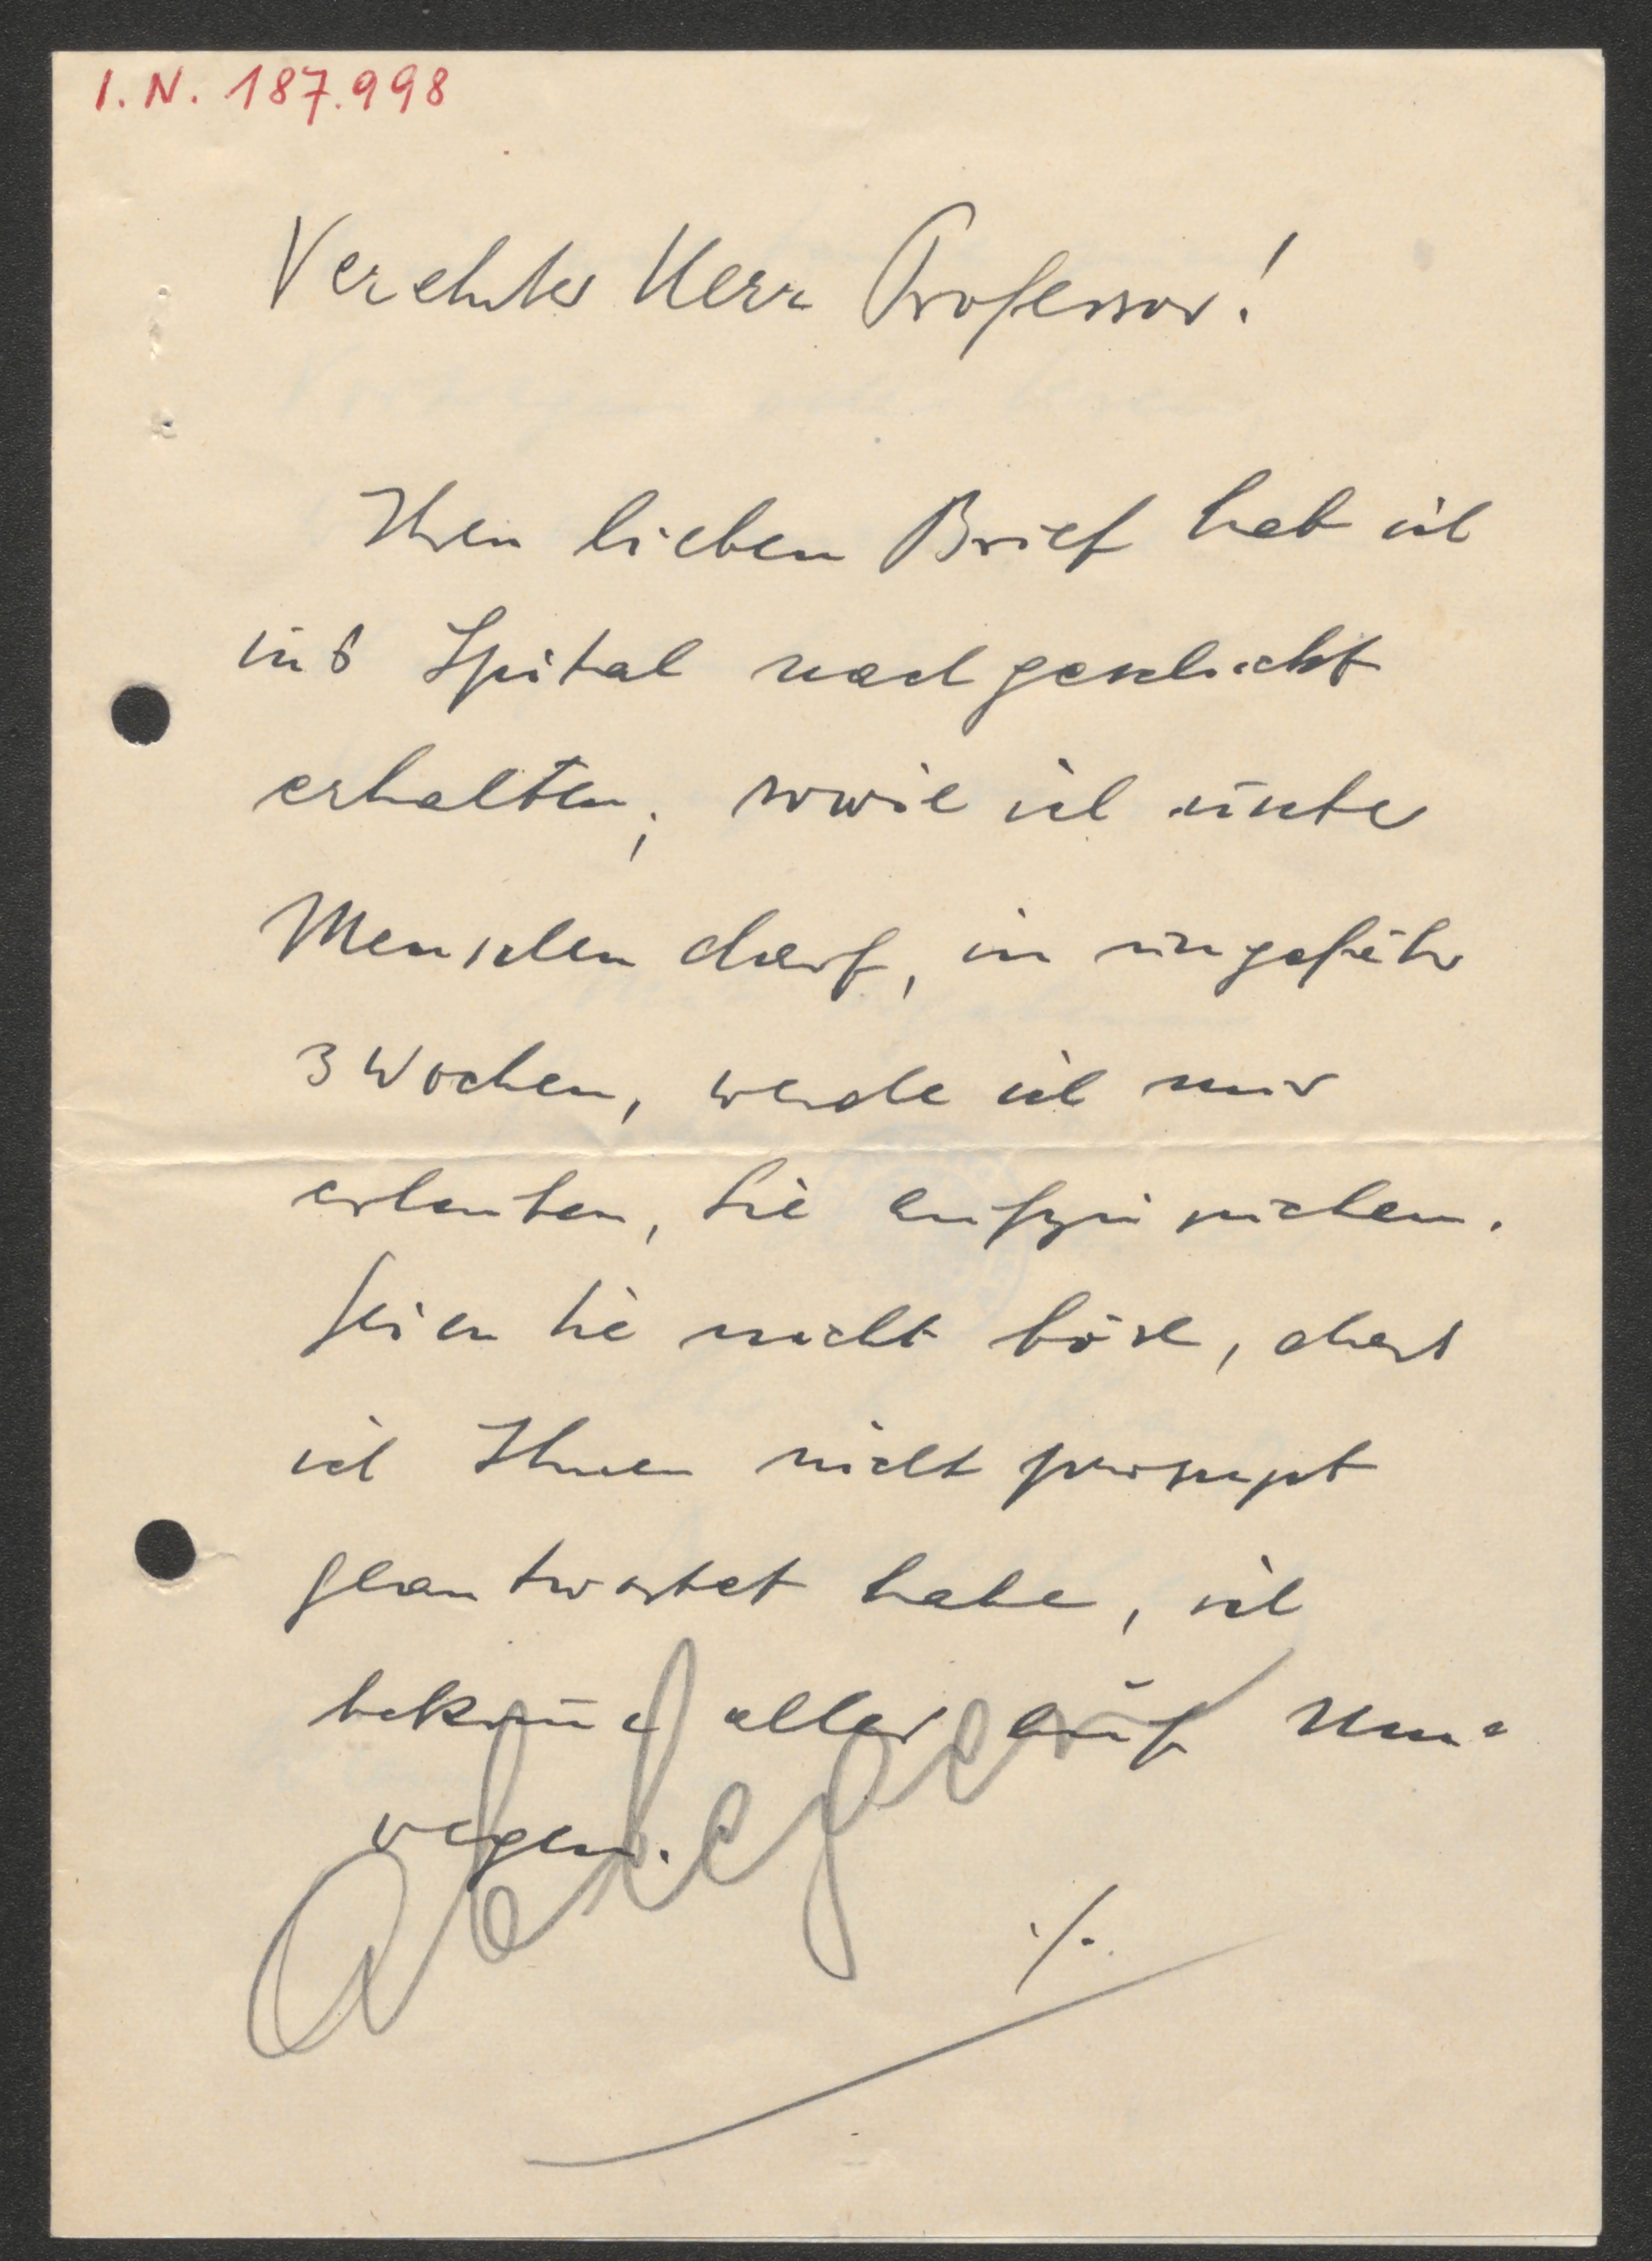 I. N. 187.998
Verehrter Herr Professor!
Ihren lieben Brief hab ich
ins Spital nachgeschickt
erhalten; sowie ich unter
Menschen darf, in ungefähr
3 Wochen, werde ich mir
erlauben, Sie aufzusuchen.
Seien Sie nicht böse, dass
ich Ihnen nicht prompt
geantwortet habe, ich
bekomme alles auf Um-
wegen.
./.